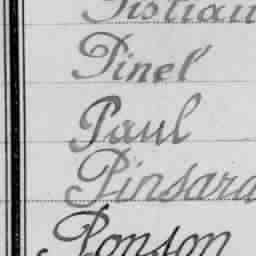 Pinel
Paul
Pinsard
Ponson